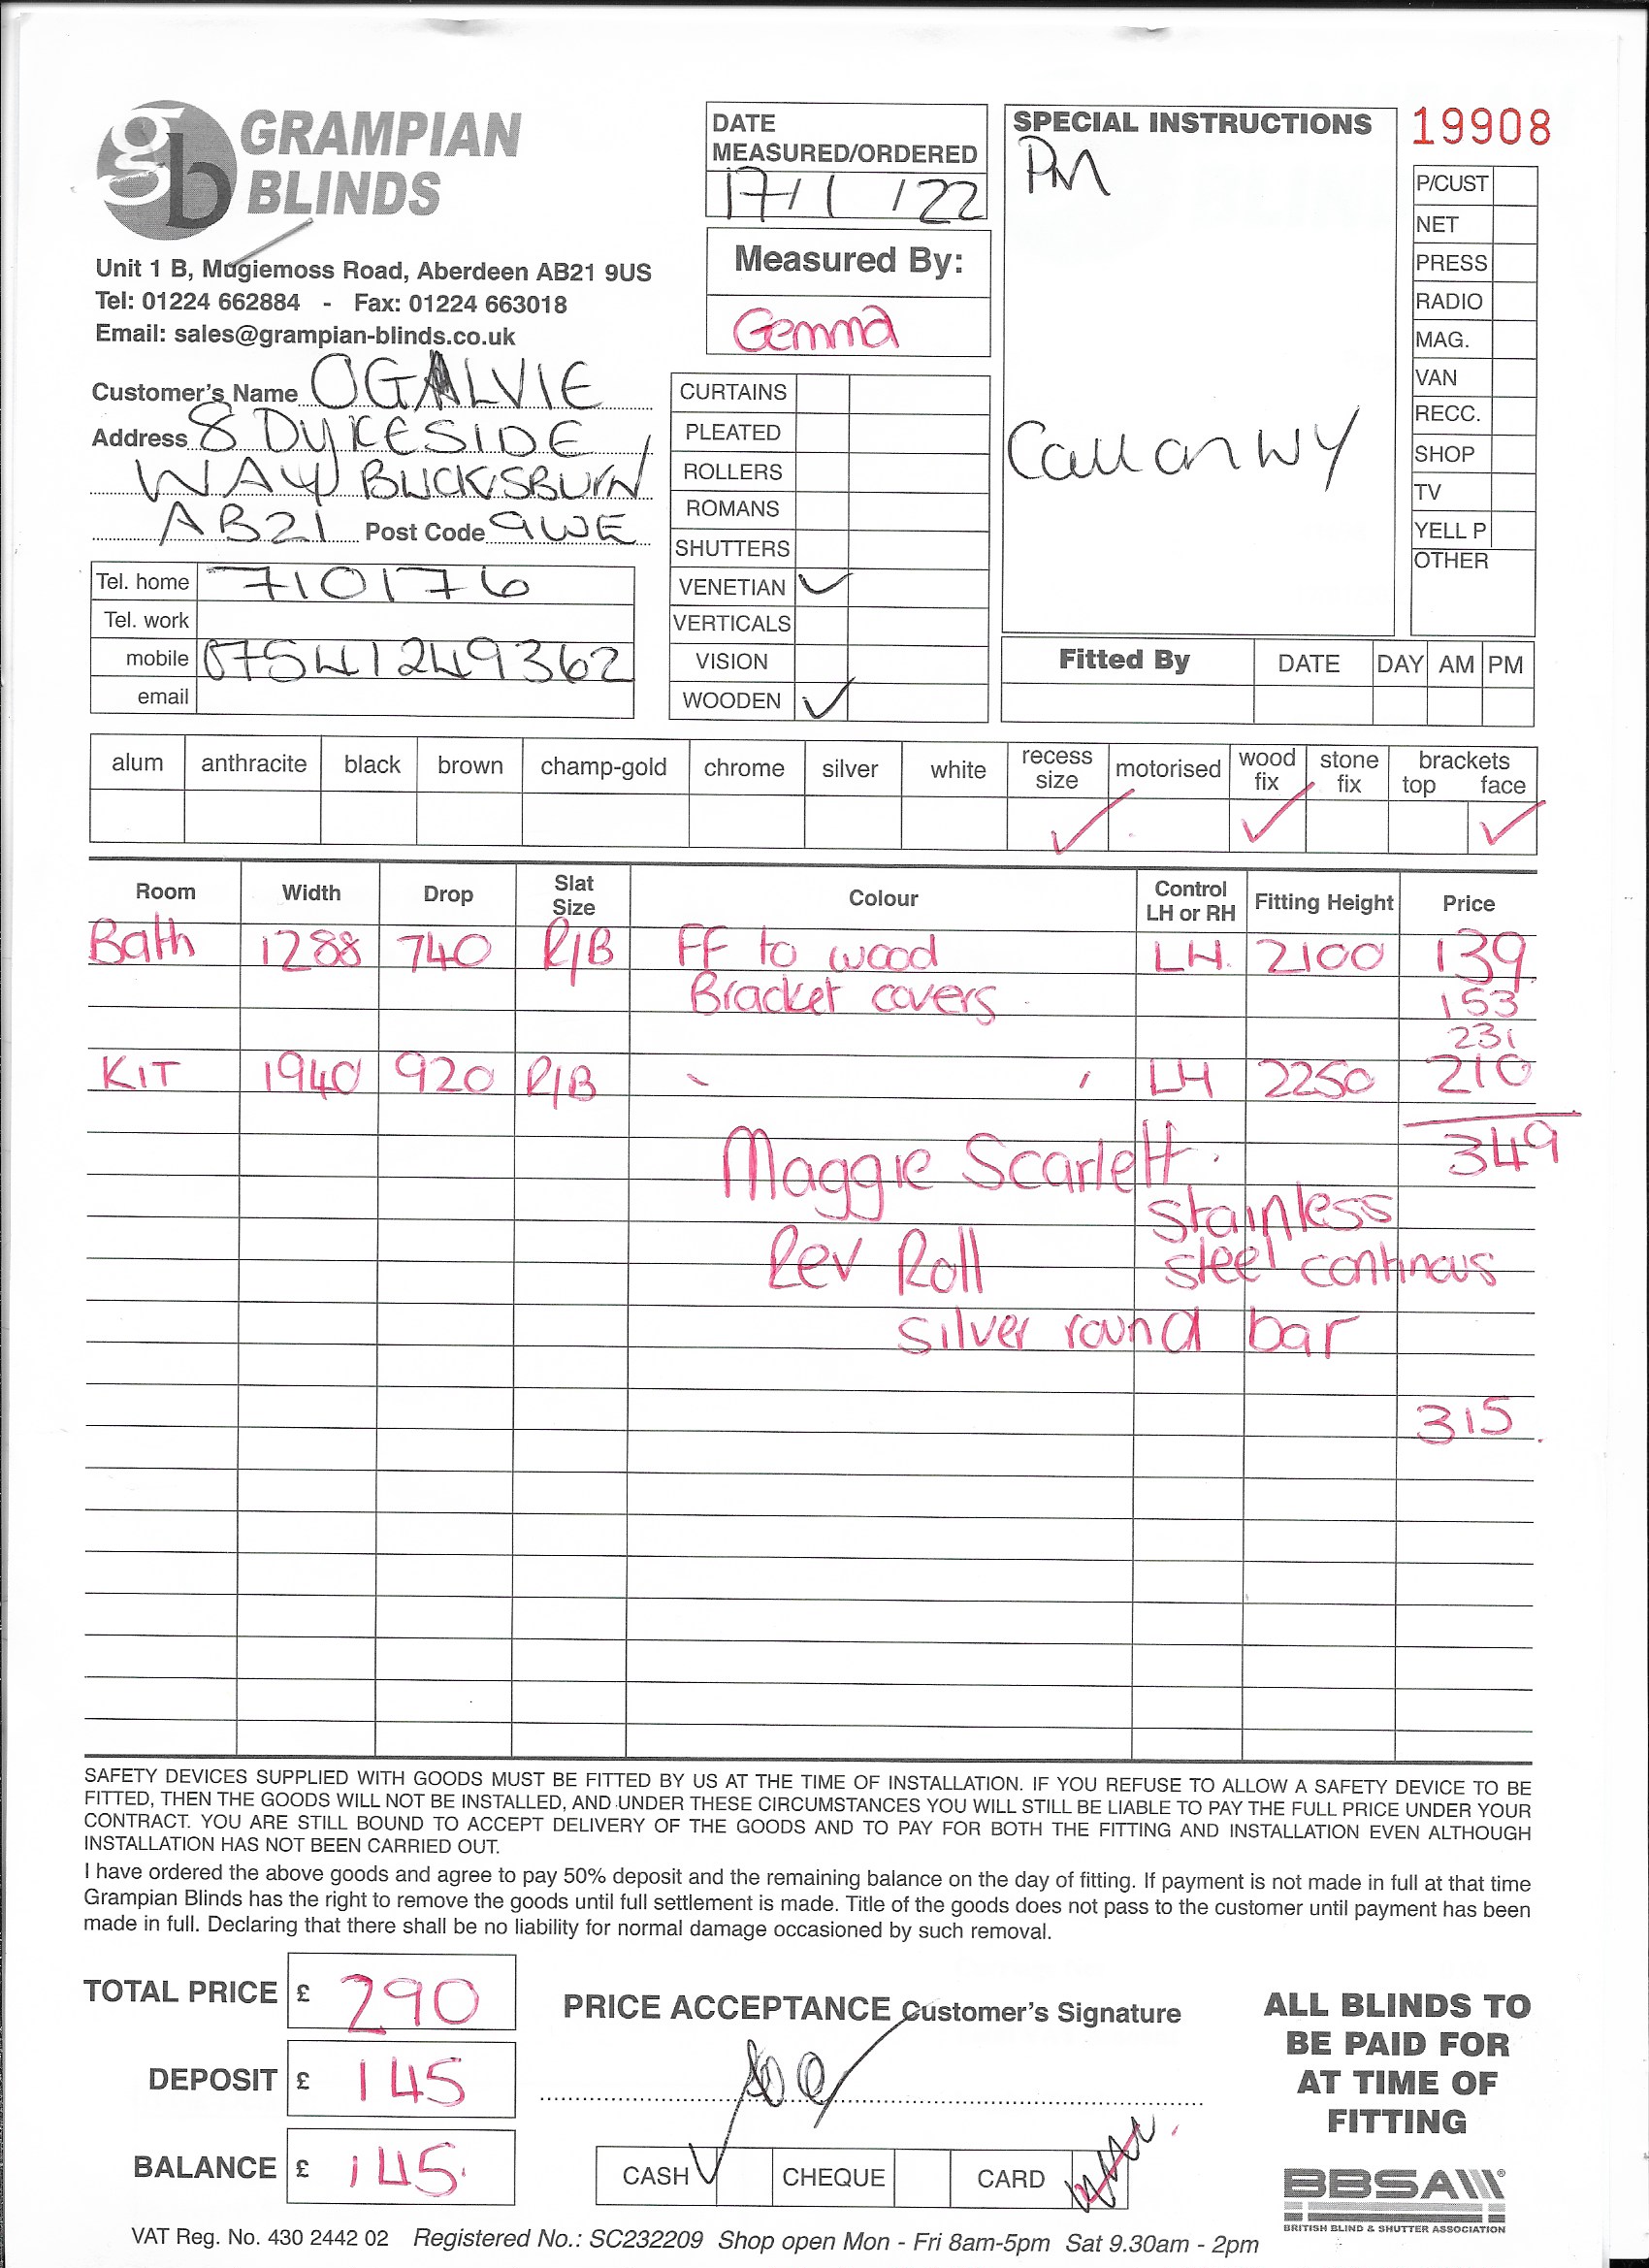 gb GRAMPIAN
BLINDS
Unit 1 B, Mugiemoss Road, Aberdeen AB21 9US
Tel: 01224 662884 - Fax: 01224 663018
Email: sales@grampian-blinds.co.uk
Customer's Name OGALVIE
Address 8 DYKESIDE
WAY BUCKSBURN
AB21 Post Code 9WE
Tel. home 710176
Tel. work
mobile 07541249362
email
DATE
MEASURED/ORDERED
17/1/22
Measured By:
Gemma
CURTAINS
PLEATED
ROLLERS
ROMANS
SHUTTERS
VENETIAN ✓
VERTICALS
VISION
WOODEN ✓
SPECIAL INSTRUCTIONS
PM
Call on WY
19908
P/CUST
NET
PRESS
RADIO
MAG.
VAN
RECC.
SHOP
TV
YELL P
OTHER
Fitted By DATE DAY AM PM
alum anthracite black brown champ-gold chrome silver white recess size motorised wood fix stone fix brackets top face
✓ ✓ ✓
Room Width Drop Slat Size Colour Control LH or RH Fitting Height Price
Bath 1288 740 R/B FF to wood LH. 2100 139
Bracket covers 153
231
KIT 1940 920 R/B LH 2250 210
349
Maggie Scarlett.
stainless
Rev Roll steel continous
silver round bar
315.
SAFETY DEVICES SUPPLIED WITH GOODS MUST BE FITTED BY US AT THE TIME OF INSTALLATION. IF YOU REFUSE TO ALLOW A SAFETY DEVICE TO BE
FITTED, THEN THE GOODS WILL NOT BE INSTALLED, AND UNDER THESE CIRCUMSTANCES YOU WILL STILL BE LIABLE TO PAY THE FULL PRICE UNDER YOUR
CONTRACT. YOU ARE STILL BOUND TO ACCEPT DELIVERY OF THE GOODS AND TO PAY FOR BOTH THE FITTING AND INSTALLATION EVEN ALTHOUGH
INSTALLATION HAS NOT BEEN CARRIED OUT.
I have ordered the above goods and agree to pay 50% deposit and the remaining balance on the day of fitting. If payment is not made in full at that time
Grampian Blinds has the right to remove the goods until full settlement is made. Title of the goods does not pass to the customer until payment has been
made in full. Declaring that there shall be no liability for normal damage occasioned by such removal.
TOTAL PRICE £ 290
DEPOSIT £ 145
BALANCE £ 145.
PRICE ACCEPTANCE Customer's Signature
CASH ✓ CHEQUE CARD
ALL BLINDS TO
BE PAID FOR
AT TIME OF
FITTING
BBSA
BRITISH BLIND & SHUTTER ASSOCIATION
VAT Reg. No. 430 2442 02 Registered No.: SC232209 Shop open Mon - Fri 8am-5pm Sat 9.30am - 2pm